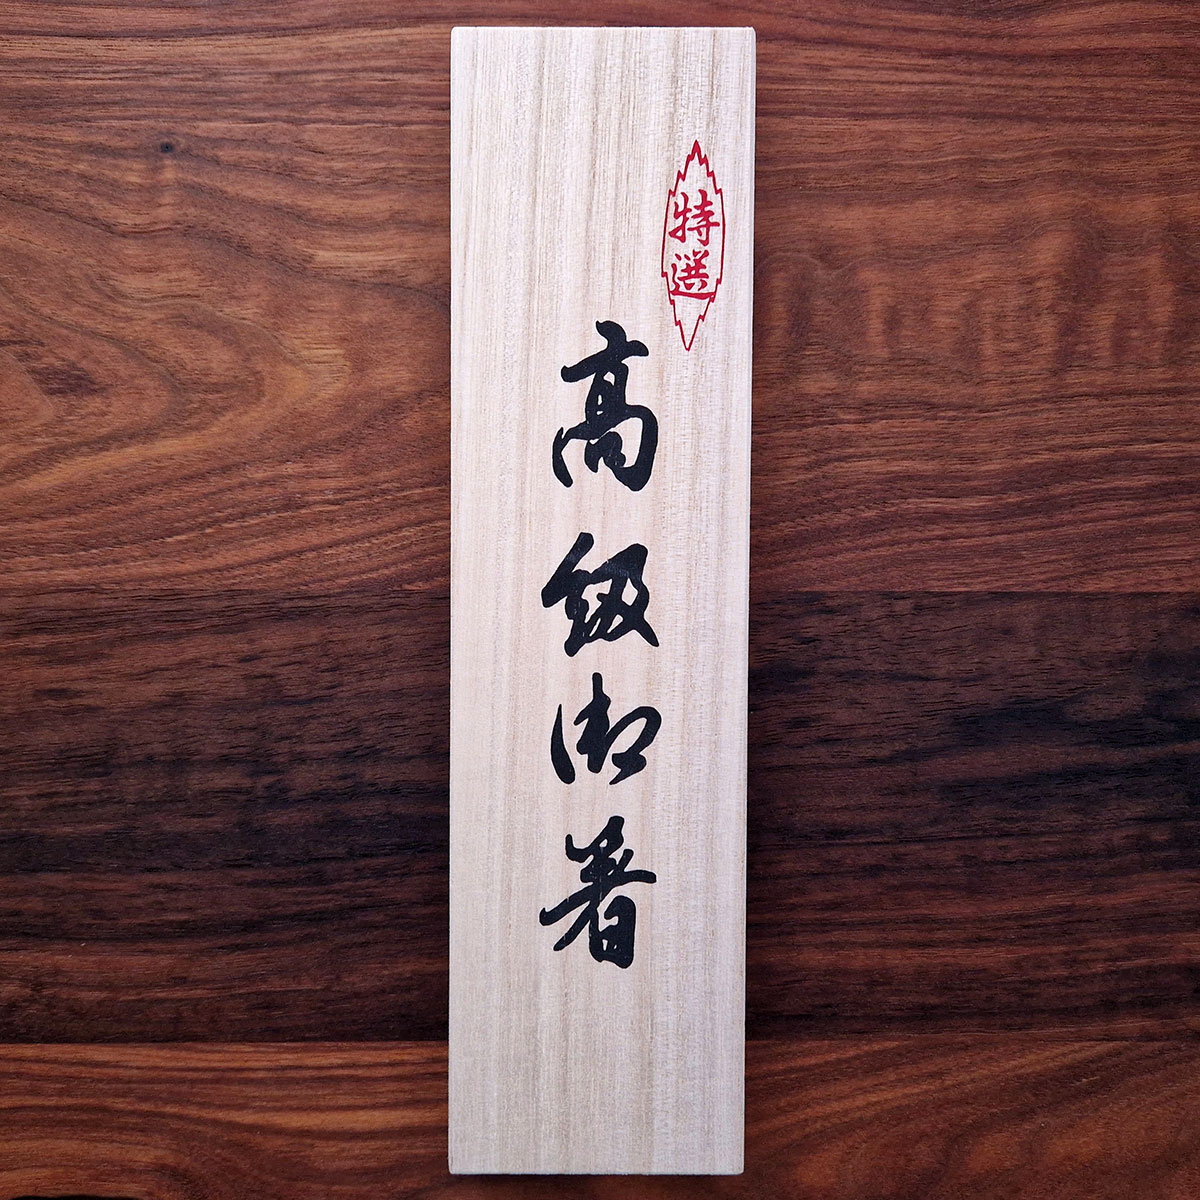 特選
高級御箸